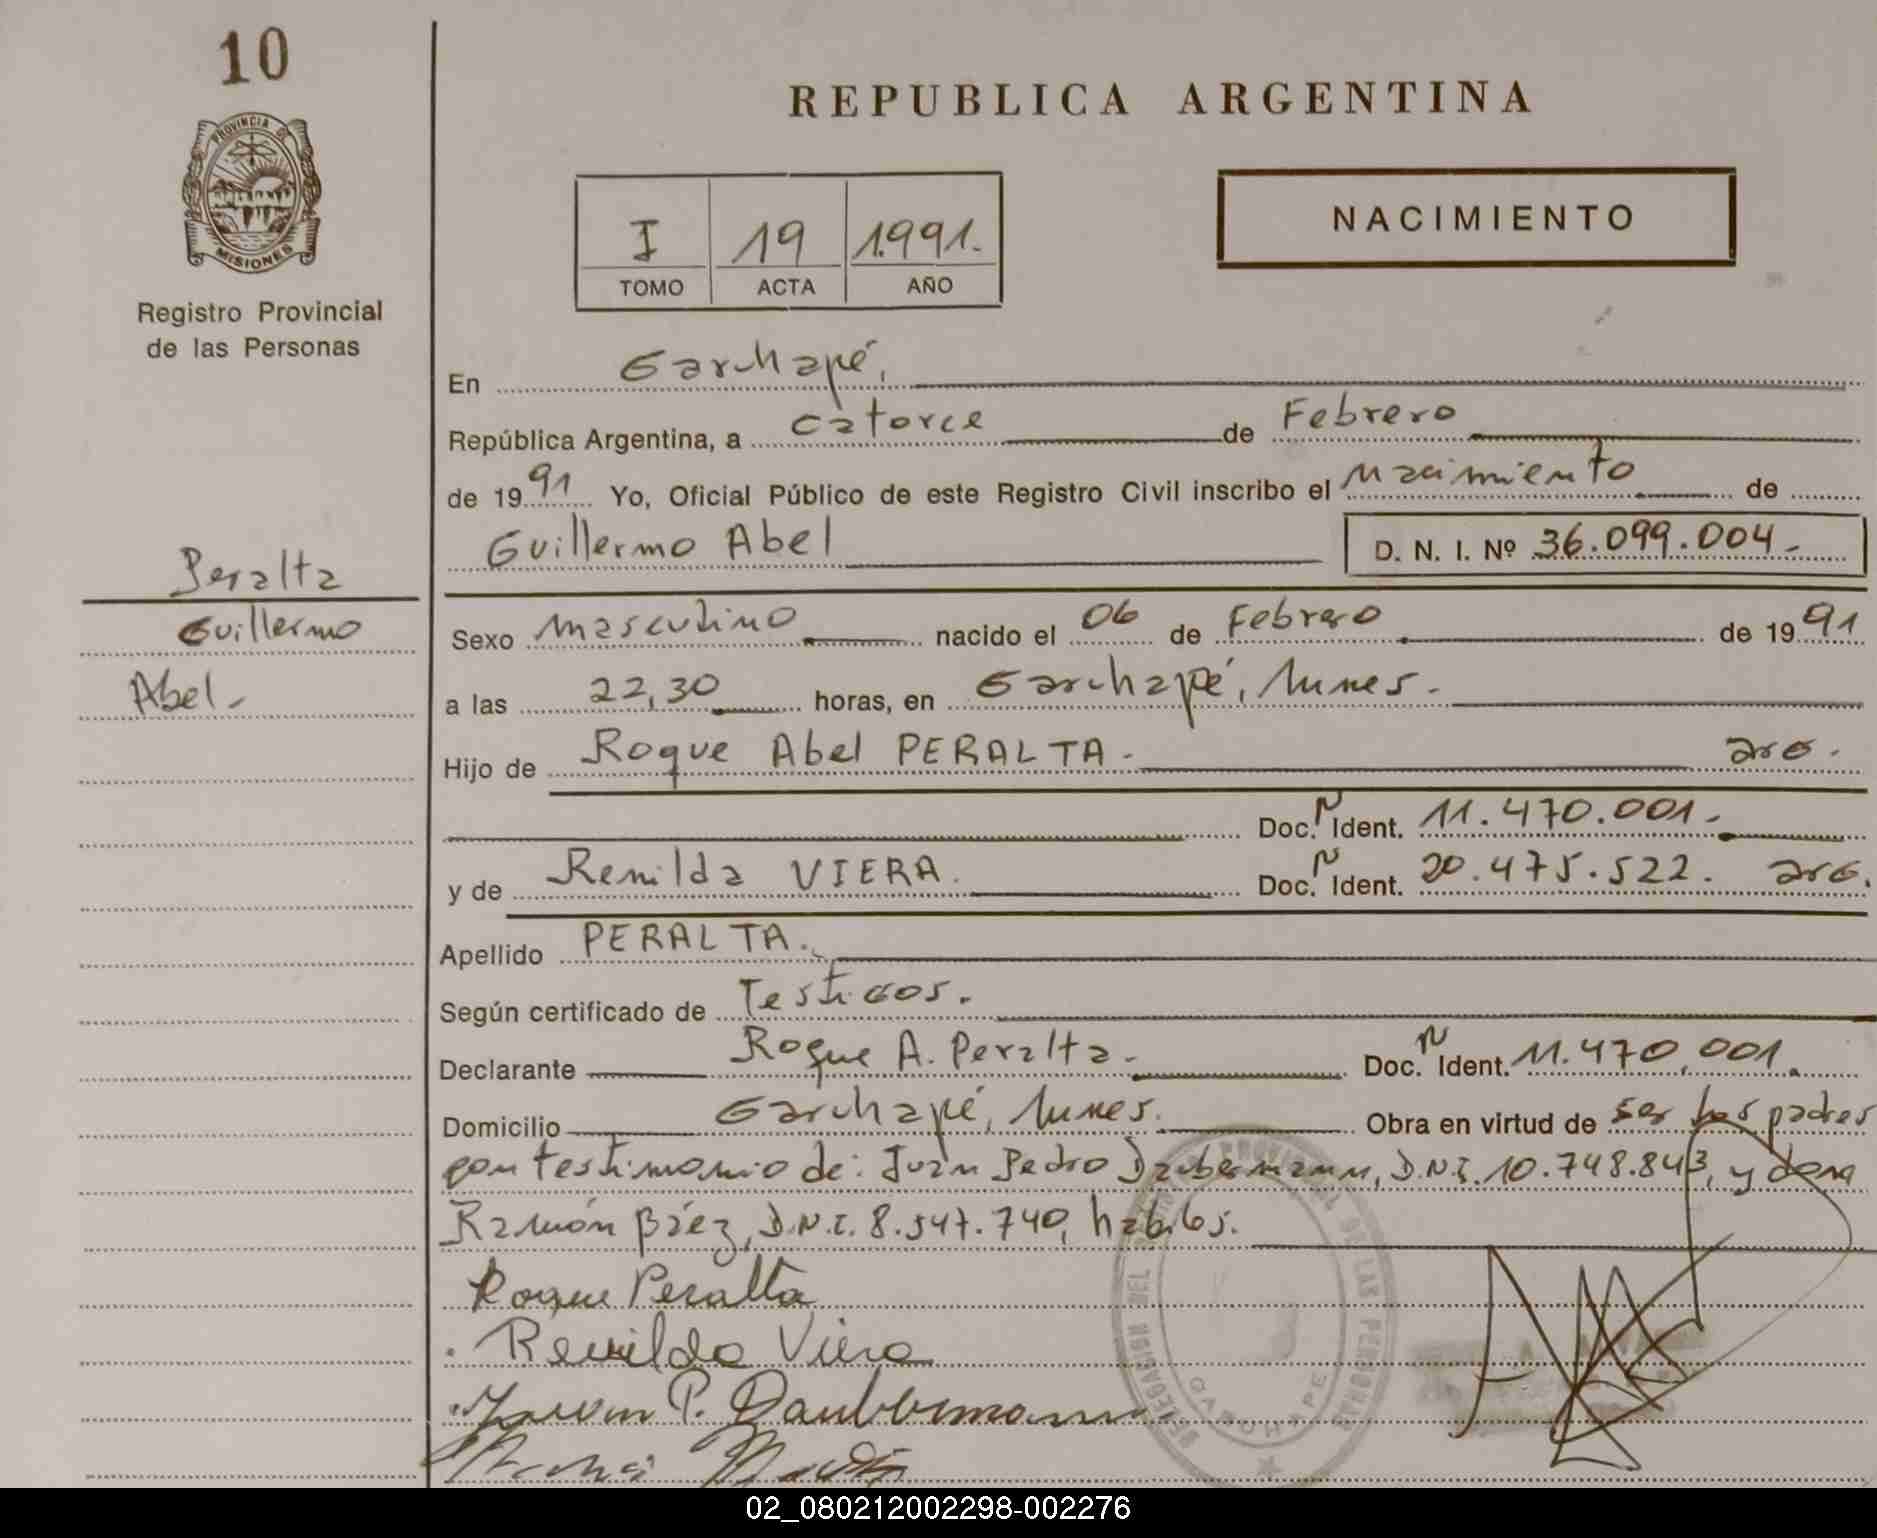 10
PROVINCIA DE
MISIONES
Registro Provincial
de las Personas
REPUBLICA ARGENTINA
NACIMIENTO
I 19 1.991.
TOMO ACTA AÑO
En Garuhapé,
República Argentina, a catorce de Febrero
de 1991 Yo, Oficial Público de este Registro Civil inscribo el Nacimiento de
Guillermo Abel D. N. I. Nº 36.099.004.-
Peralta
Guillermo
Abel.-
Sexo masculino nacido el 06 de Febrero de 1991
a las 22,30 horas, en Garuhapé, Mnes.-
Hijo de Roque Abel PERALTA.- arg.
Doc. N Ident. 11.470.001.-
y de Renilda VIERA. Doc. N Ident. 20.475.522. arg.
Apellido PERALTA.
Según certificado de Testigos.
Declarante Roque A. Peralta.- Doc. N Ident. 11.470.001.
Domicilio Garuhapé, Mnes. Obra en virtud de ser los padres
con testimonio de: Juan Pedro Daubermann, D.N.I. 10.748.843, y don
Ramón Báez, D.N.I. 8.547.740, hábiles.
Roque Peralta
Renilda Viera
P. Daubermann
DELEGACION DEL REGISTRO PROVINCIAL DE LAS PERSONAS
GARUHAPE
02_080212002298-002276